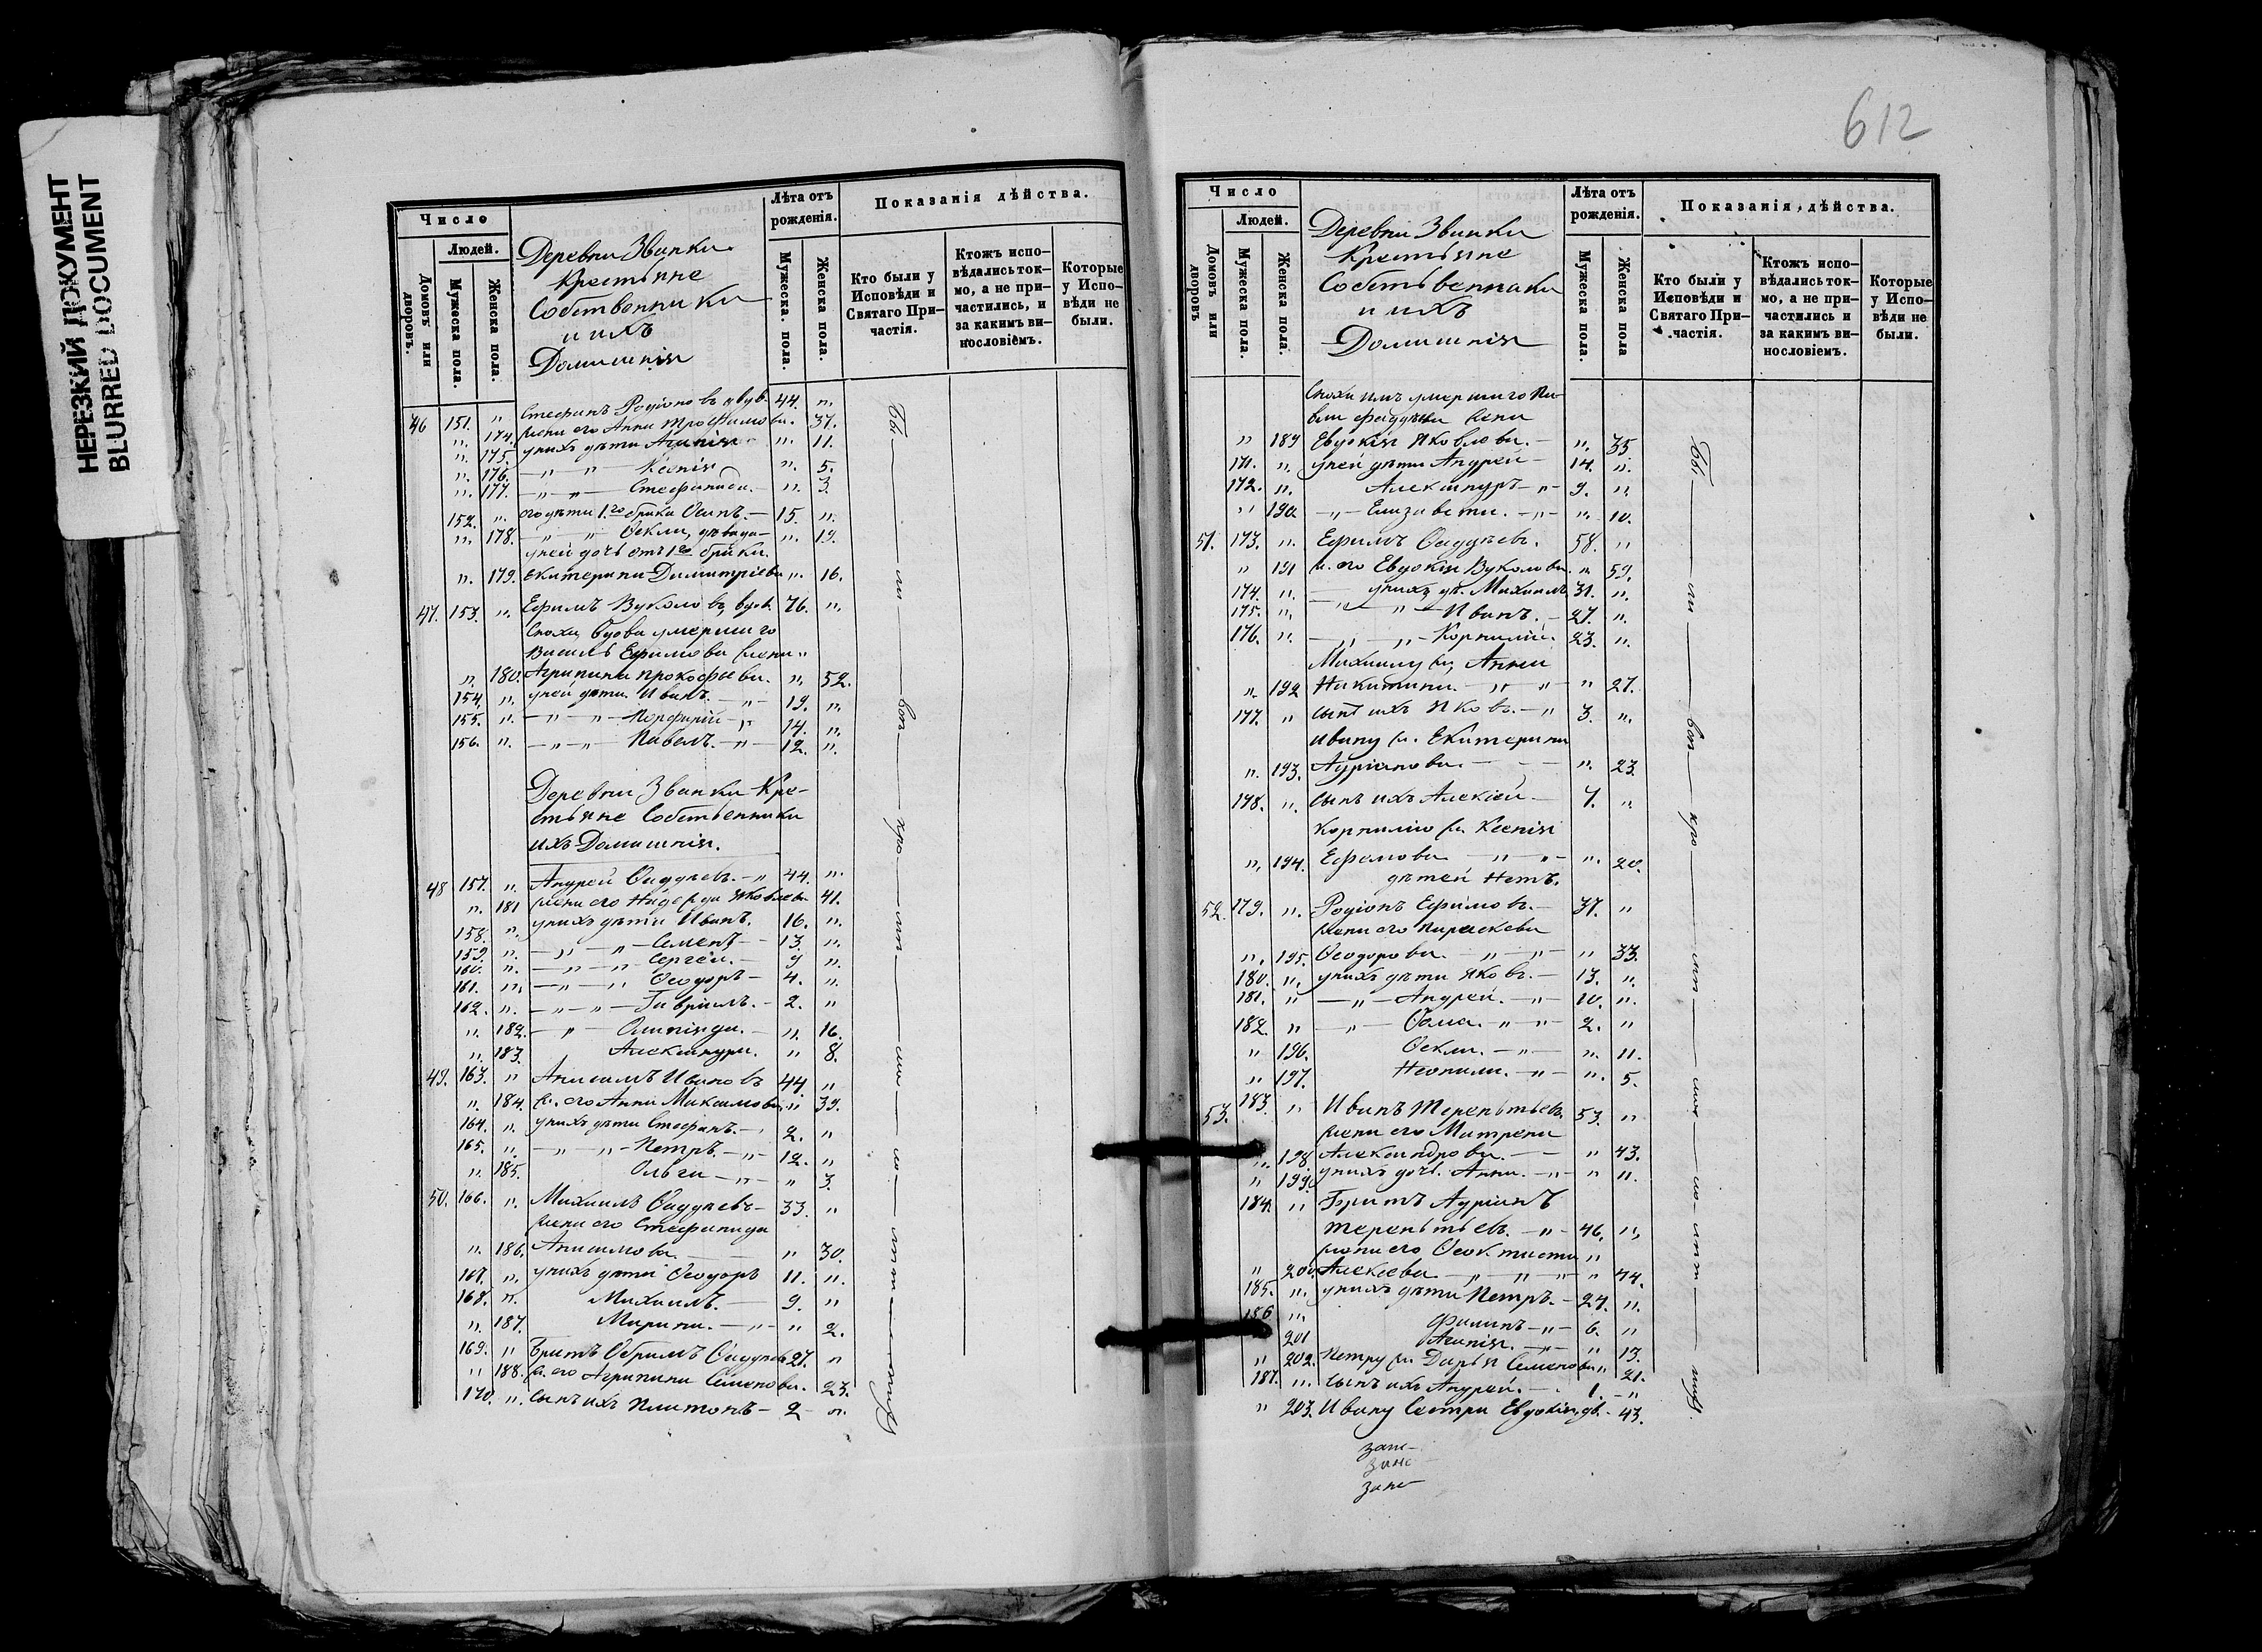 НЕРЕЗКИЙ ДОКУМЕНТ
BLURRED DOCUMENT
Число
Людей.
Домовъ или дворовъ.
Мужеска пола.
Женска пола.
Деревни Званки
Крестьяне
Собственники
и ихъ
Домашнія
Лѣта отъ рожденія.
Мужеска. пола.
Женска пола.
Показанія дѣйства.
Кто были у Исповѣди и Святаго Причастія.
Ктожъ исповѣдались токмо, а не причастились, и за какимъ винословіемъ.
Которые у Исповѣди не были.
46 151. " Стефанъ Родіоновъ 44. "
" 174. жена его Анна Трофимова. 37.
" 175. у нихъ дѣти Агапія " 11.
" 176. — " — " — Ксенія " 5.
" 177. — " — " — Стефанида. — " 3.
152. " его дѣти 1.го брака Осипъ. — 15. "
" 178. — " — " Ѳекла, " 19.
у ней дочь отъ 1го брака.
" 179. Екатерина Димитріева " 16.
47. 153. " Ефимъ Вуколовъ, вдов. 76. "
Сноха, вдова умершаго
Василь Ефимова жена "
" 180. Агрипина Прокофьева. " 52.
154. " у ней дѣти. Иванъ. — " — 19. "
155. " — " — " — Порфирій — " 14. "
156. " — " — " Павелъ. — " — 12. "
Деревни Званки Кре-
стьяне Собственники
ихъ Домашнія.
48 157. " Андрей Ѳаддѣевъ. — " 44. "
" 181 жена его Надежда Яковлева 41.
158. " у нихъ дѣти Иванъ. 16. "
159. " — " — " — Семенъ — 13. "
160. " — " — " Сергѣй. — 9 "
161. " — " — " Ѳеодоръ — 4. "
162. " — " — " — Гавріилъ. — 2. "
" 182. — " — Олимпіяда. — " 16.
" 183. Александра. " 8.
49. 163. " Анисимъ Ивановъ 44. "
" 184. ж. его Анна Максимова " 39.
164. " у нихъ дѣти Стефанъ. — 2. "
165. " — " — " — Петръ. — " — 12. "
" 185. Ольга — " — " 3.
50. 166. " Михаилъ Ѳаддѣевъ — 33. "
жена его Стефанида
" 186. Анисимова. — " 30.
167. " у нихъ дѣти Ѳеодоръ 11. "
168. " Михаилъ. — 9. "
" 187. Марина. — " — " 2.
169. " Братъ Ѳаддѣевъ 27. "
" 188. ж. его Агрипина Семенова. 23.
170. " сынъ ихъ Платонъ — 2 "
612
Число
Людей.
Домовъ или дворовъ
Мужеска пола.
Женска пола.
Деревни Званки
Крестьяне
Собственники
и ихъ
Домашнія
Лѣта отъ рожденія.
Мужеска пола.
Женска пола
Показанія дѣйства.
Кто были у Исповѣди и Святаго Причастія.
Ктожъ исповѣдались токмо, а не причастились и за какимъ винословіемъ.
Которые у Исповѣди не были.
умершаго Па-
вла жена
" 189 Евдокія Яковлева. — " 35
171. " у ней дѣти Андрей — 14. "
172. " Александръ — " — 9. "
" 190 — " — Елизавета. — " — " 10.
51. 173. " Ефимъ Ѳаддѣевъ. 58. "
" 191 ж. его Евдокія Вуколова. " 59.
174. " — у нихъ дѣ. Михаилъ 31. "
175. " — " — " — Иванъ. — 27. "
176. " — " — " — Корнилій. 23. "
Михаилу ж. Анна
" 192 Никитина. — " — " — " 27.
177. " сынъ ихъ Яковъ. — " 3. "
Ивану ж. Екатерина
" 193. Адріанова. — — — " 23
178. " сынъ ихъ Алексѣй — 4. "
Корнилію ж. Ксенія
" 194. Ефремова — " — " — " 20.
дѣтей нетъ.
52. 179. " Родіонъ Ефимовъ. — 37. "
жена его Параскева
" 195. Ѳеодорова. — " — " — " 33.
180. " у нихъ дѣти Яковъ. — 13. "
181. " — " — Андрей. — " — 10. "
182. " — " — Ѳома. — " — " — 2. "
" 196. Ѳекла. — " — " 11.
" 197. Неонила. — " — " 5.
53. 183. " Иванъ Терентьевъ. 53. "
жена его Матрена
" 198. Александрова. — — " 43.
" 199. у нихъ дочь. Анна. — " — " 11.
184. " Братъ Адріанъ
Терентьевъ. — " — 46. "
жена его Ѳеоктиста "
" 200. Алексѣева — " — " — " — " 44.
185. " у нихъ дѣти Петръ. — 24. "
186 " Филипъ — " — 6. "
201 Агапія. — " — " 13.
" 202. Петру ж. Дарья Семенова " 21.
187. " сынъ ихъ Андрей. — 1. — "
" 203. Ивану Сестра Евдокія, дѣ. — 43.